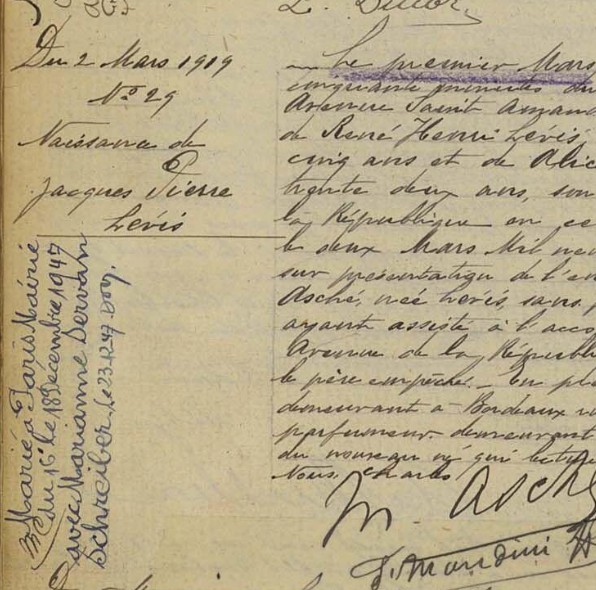 Du 2 Mars 1919
N° 29
Naissance de
Jacques Pierre
Lévis
Le premier Mars
cinquante minutes du
Avenue Saint Amand
de René Henri Lévis
cinq ans et de Alic
trente deux ans, son
la République en ce
le deux Mars Mil neu
sur présentation de l'en
Asché, née Lévis, sans p
ayant assisté à l'acco
Avenue de la Républi
le père empêché. En pl
demeurant à Bordeaux
parfumeur demeurant
du nouveau né qui lect
Nous, Charles
M Asche
Marié à Paris Mairie
du 16e le 18 Décembre 1947
avec Marianne Servan
Schreiber. Le 23.12.47